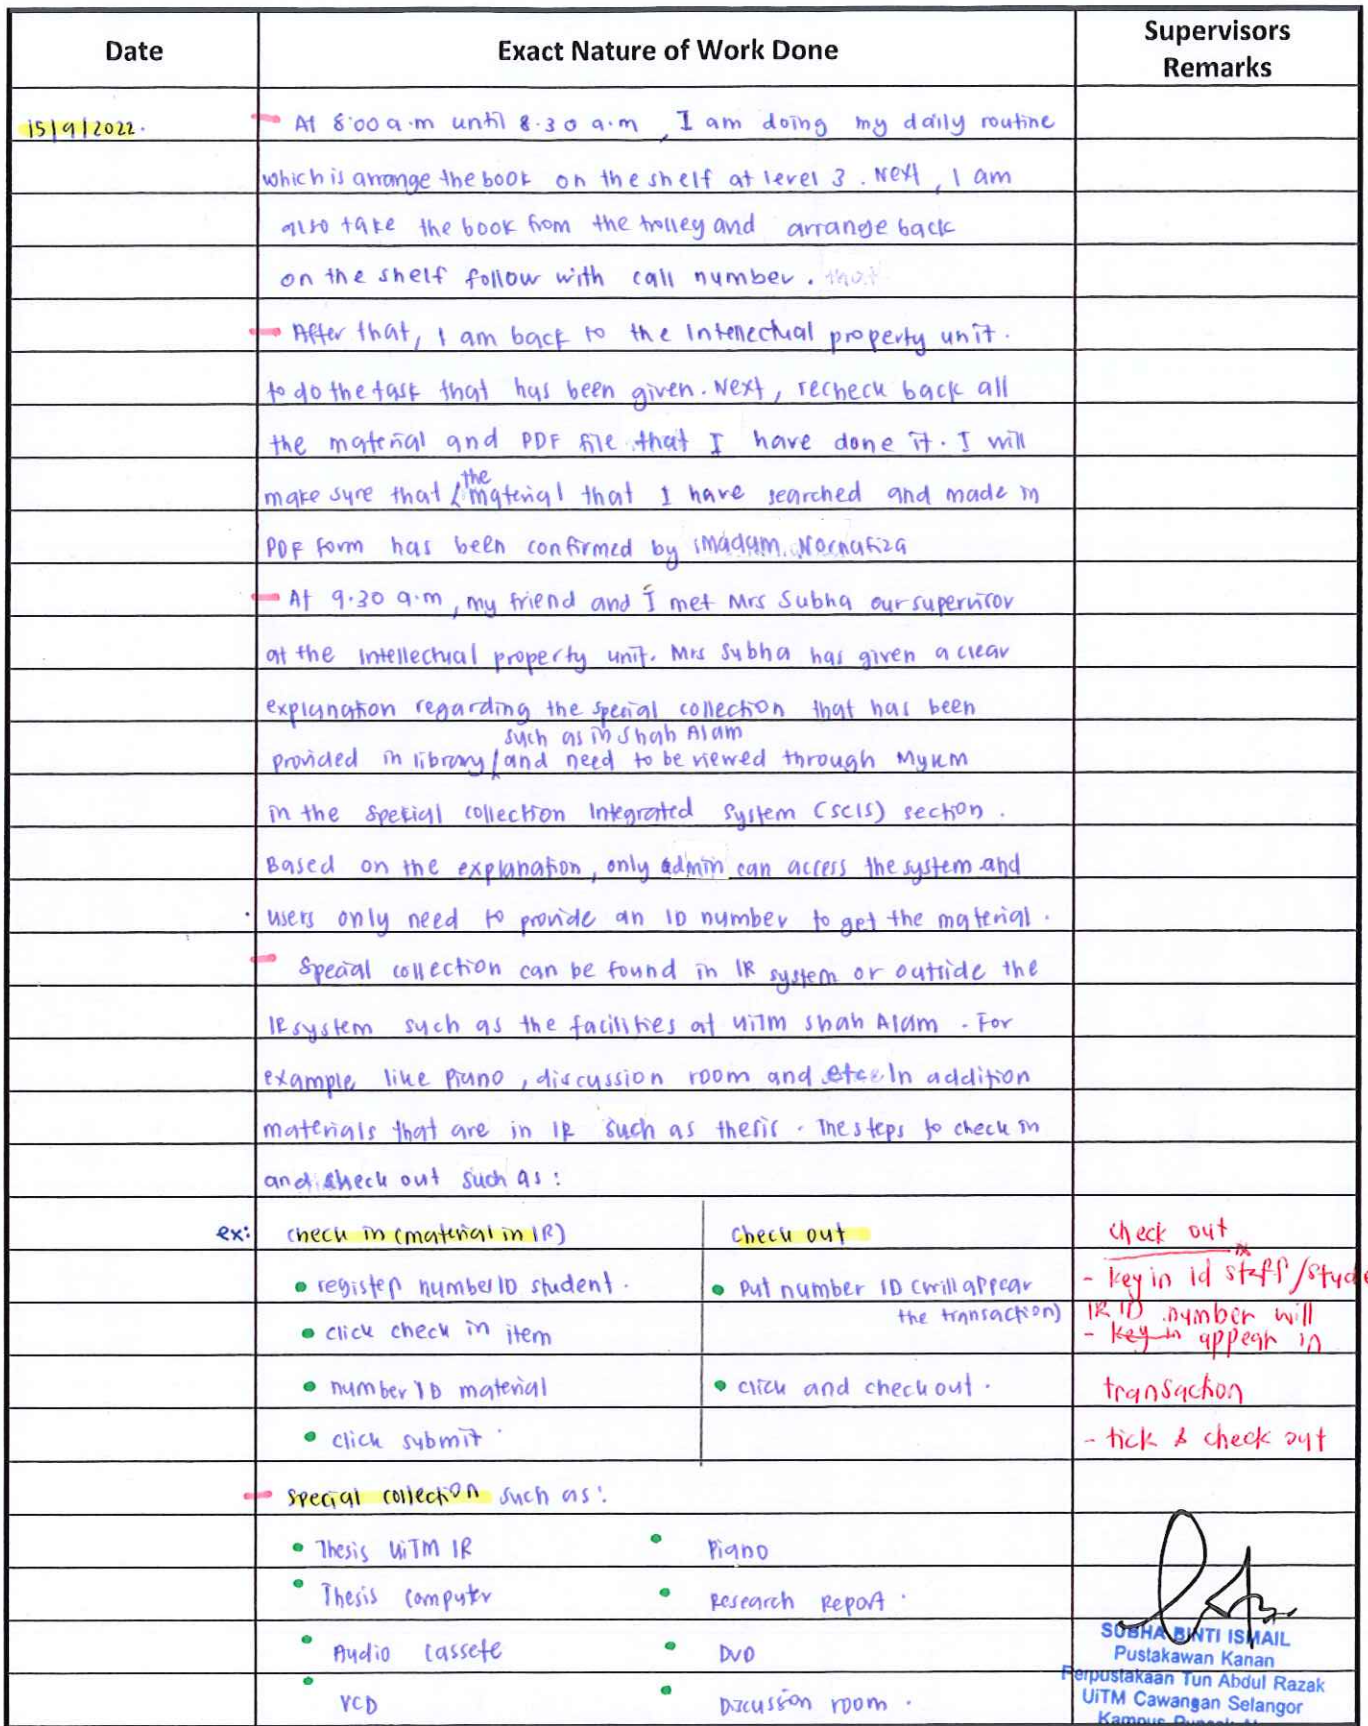 Date Exact Nature of Work Done Supervisors Remarks
15/9/2022. - At 8:00 a.m until 8.30 a.m, I am doing my daily routine
which is arrange the book on the shelf at level 3. Next, I am
also take the book from the trolley and arrange back
on the shelf follow with call number. that
- After that, I am back to the Intellectual property unit.
to do the task that has been given. Next, recheck back all
the material and PDF file that I have done it. I will
make sure that the material that I have searched and made in
PDF form has been confirmed by madam Nornafiza
- At 9.30 a.m, my friend and I met Mrs Subha our supervisor
at the Intellectual property unit. Mrs Subha has given a clear
explanation regarding the special collection that has been
provided in library such as in Shah Alam and need to be viewed through MyKM
in the Special collection Integrated System (SCIS) section.
Based on the explanation, only admin can access the system and
users only need to provide an ID number to get the material.
- Special collection can be found in IR system or outside the
IR system such as the facilities at UiTM Shah Alam. For
example like Piano, discussion room and etc. In addition
materials that are in IR such as thesis. The steps to check in
and check out such as:
ex: check in (material in IR) Check out
• register number ID student.
• click check in item
• number ID material
• click submit
• Put number ID (will appear
the transaction)
• click and check out.
check out
- key in id staff/stude
IR ID number will
- key in appear in
transaction
- tick & check out
- Special collection such as:
• Thesis UiTM IR • Piano
• Thesis computer • Research Report.
• Audio Cassete • DVD
• VCD • Discussion room.
SUBHA BINTI ISMAIL
Pustakawan Kanan
Perpustakaan Tun Abdul Razak
UiTM Cawangan Selangor